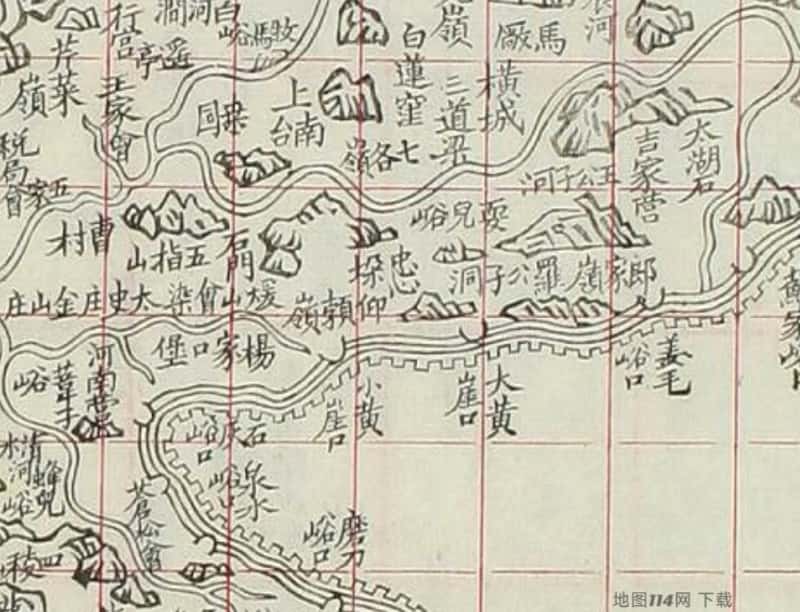 行宮
芹菜嶺
王家會
遥亭
白河澗
牧馬峪
白蓮窪
馬廠
橫城
三道梁
上南台
七各嶺
稅局
五家會
曹村
五指山
石門
煖會山
金山庄
太史庄
染
頼嶺
忠心
垛仰
耍兒峪
王公子河
吉家營
太湖石
郎家嶺
羅公子洞
楊家口堡
河南營
葦子峪
小黃崖口
大黃崖口
姜毛峪口
蘇家峪口
石灰峪口
泉水峪口
磨刀峪口
蒼松翁
清水河
蜂兒峪
四稜
地图114网 下载